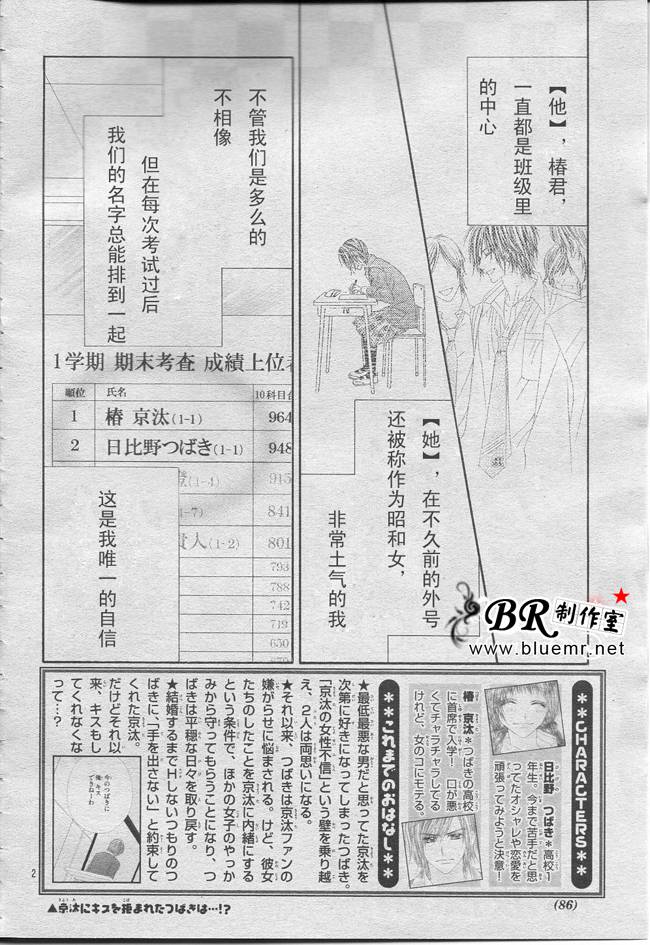 【他】，椿君，
一直都是班级里
的中心
【她】，在不久前的外号
还被称作为昭和女，
非常土气的我
不管我们是多么的
不相像
但在每次考试过后
我们的名字总能排到一起
1学期 期末考査 成績上位者
順位 氏名 10科目合
1 椿 京汰(1-1) 964
2 日比野つばき(1-1) 948
(1-4) 915
1-7) 841
貴人(1-2) 801
793
788
742
719
650
这是我唯一的自信
BR制作室
www.bluemr.net
**CHARACTERS**
日比野 つばき*高校1
年生。今まで苦手だと思
ってたオシャレや恋愛を
頑張ってみようと決意！
椿 京汰*つばきの高校
に首席で入学！ 口が悪
くてチャラチャラしてる
けれど、女のコにモテる。
**これまでのおはなし**
★最低最悪な男だと思ってた京汰を
次第に好きになってしまったつばき。
「京汰の女性不信」という壁を乗り越
え、2人は両思いになる。
★それ以来、つばきは京汰ファンの
嫌がらせに悩まされる。けど、彼女
たちのしたことを京汰に内緒にする
という条件で、ほかの女子のやっか
みから守ってもらうことになり、つ
ばきは平穏な日々を取り戻す。
★結婚するまでHしないつもりのつ
ばきに、「手を出さない」と約束して
くれた京汰。
だけどそれ以
来、キスもし
てくれなくな
って…？
今のつばきに
俺 キス
できねーわ
2
▲京汰にキスを拒まれたつばきは…!?
(86)